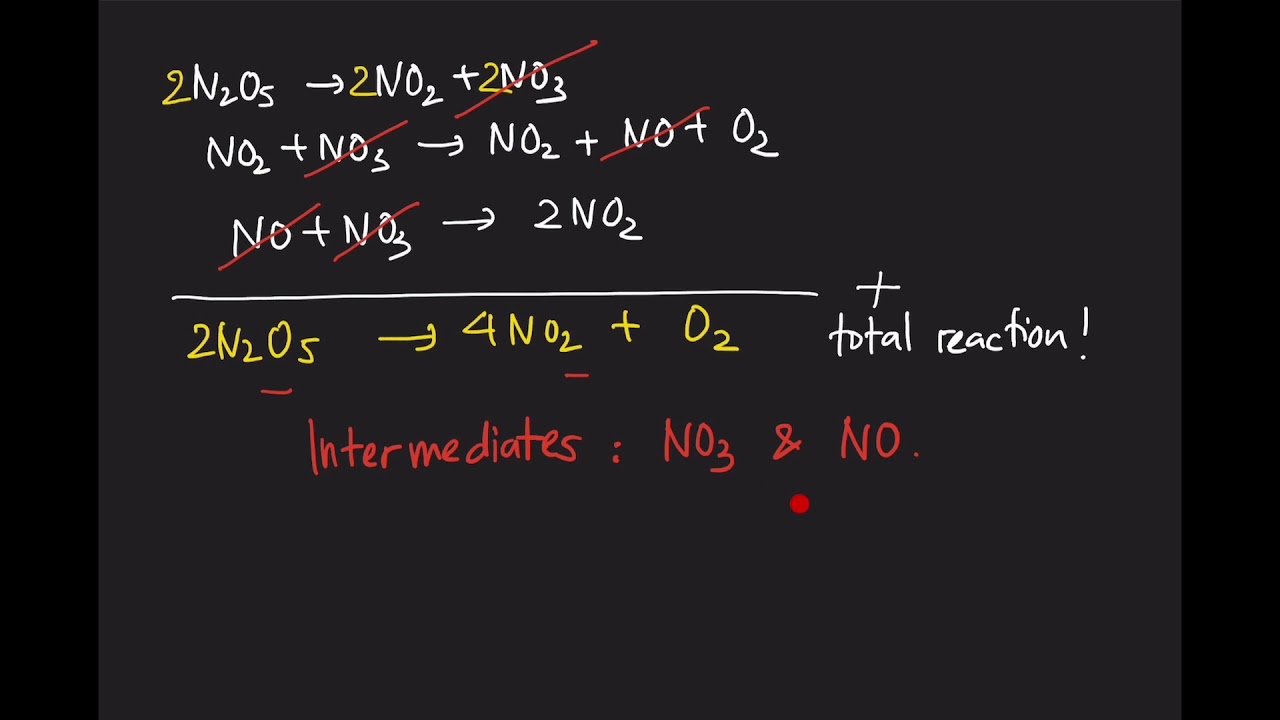 2N₂O₅ → 2NO₂ + 2NO₃
NO₂ + NO₃ → NO₂ + NO + O₂
NO + NO₃ → 2NO₂
+
2N₂O₅ → 4NO₂ + O₂ total reaction!
Intermediates : NO₃ & NO.